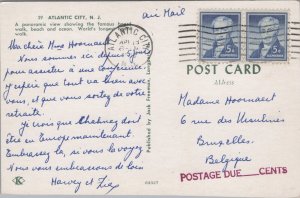 27 ATLANTIC CITY, N. J.
A panoramic view showing the famous board
walk, beach and ocean. World's longest
walk.
Air Mail
Ma chère Mme Hoornaert
Nous sommes ici depuis
pour assister à une conférence
J'espère que tout va bien avec
vous, et que vous sortez de votre
retraite.
Je crois que Chatney doit
être en Europe maintenant
Embrassez-la, si vous la voyez
Nous vous embrassons de loin
Harvey et
Published by Jack Freeman
K
ATLANTIC CITY
5¢
5¢
POST CARD
Address
Madame Hoornaert
6 rue des Ursulines
Bruxelles.
Belgique
POSTAGE DUE CENTS